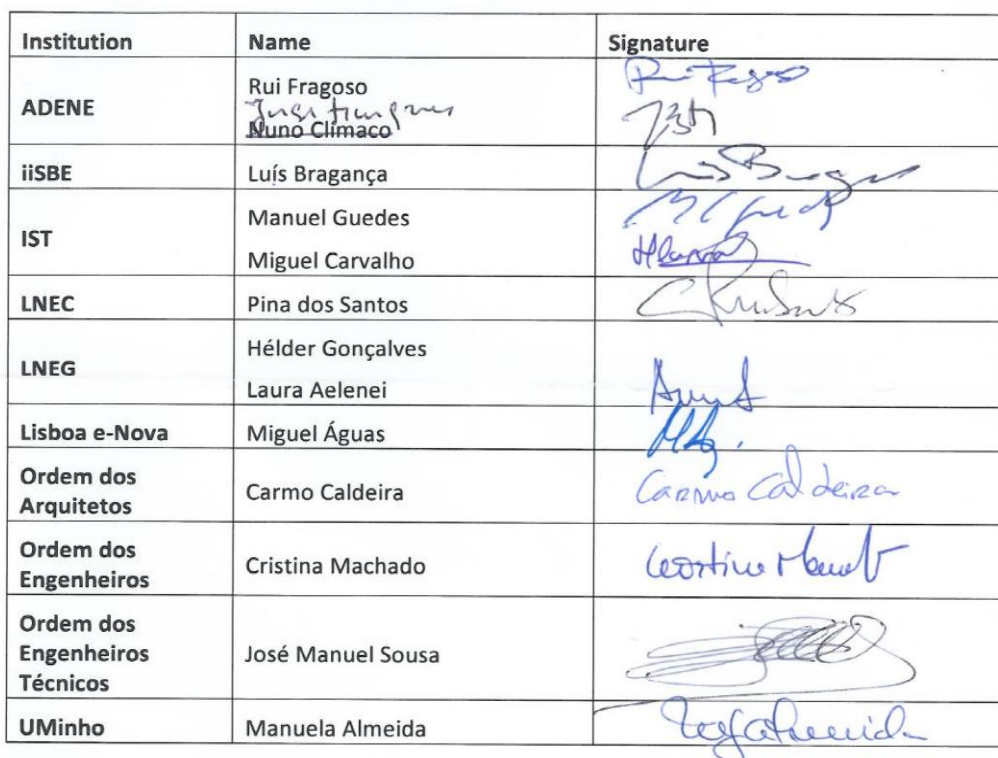 Institution Name Signature
ADENE
Rui Fragoso Rui Fragoso
Nuno Clímaco
iiSBE Luís Bragança
IST
Manuel Guedes
Miguel Carvalho
LNEC Pina dos Santos
LNEG
Hélder Gonçalves
Laura Aelenei
Lisboa e-Nova Miguel Águas
Ordem dos
Arquitetos
Carmo Caldeira Carmo Caldeira
Ordem dos
Engenheiros
Cristina Machado
Ordem dos
Engenheiros
Técnicos
José Manuel Sousa
UMinho Manuela Almeida